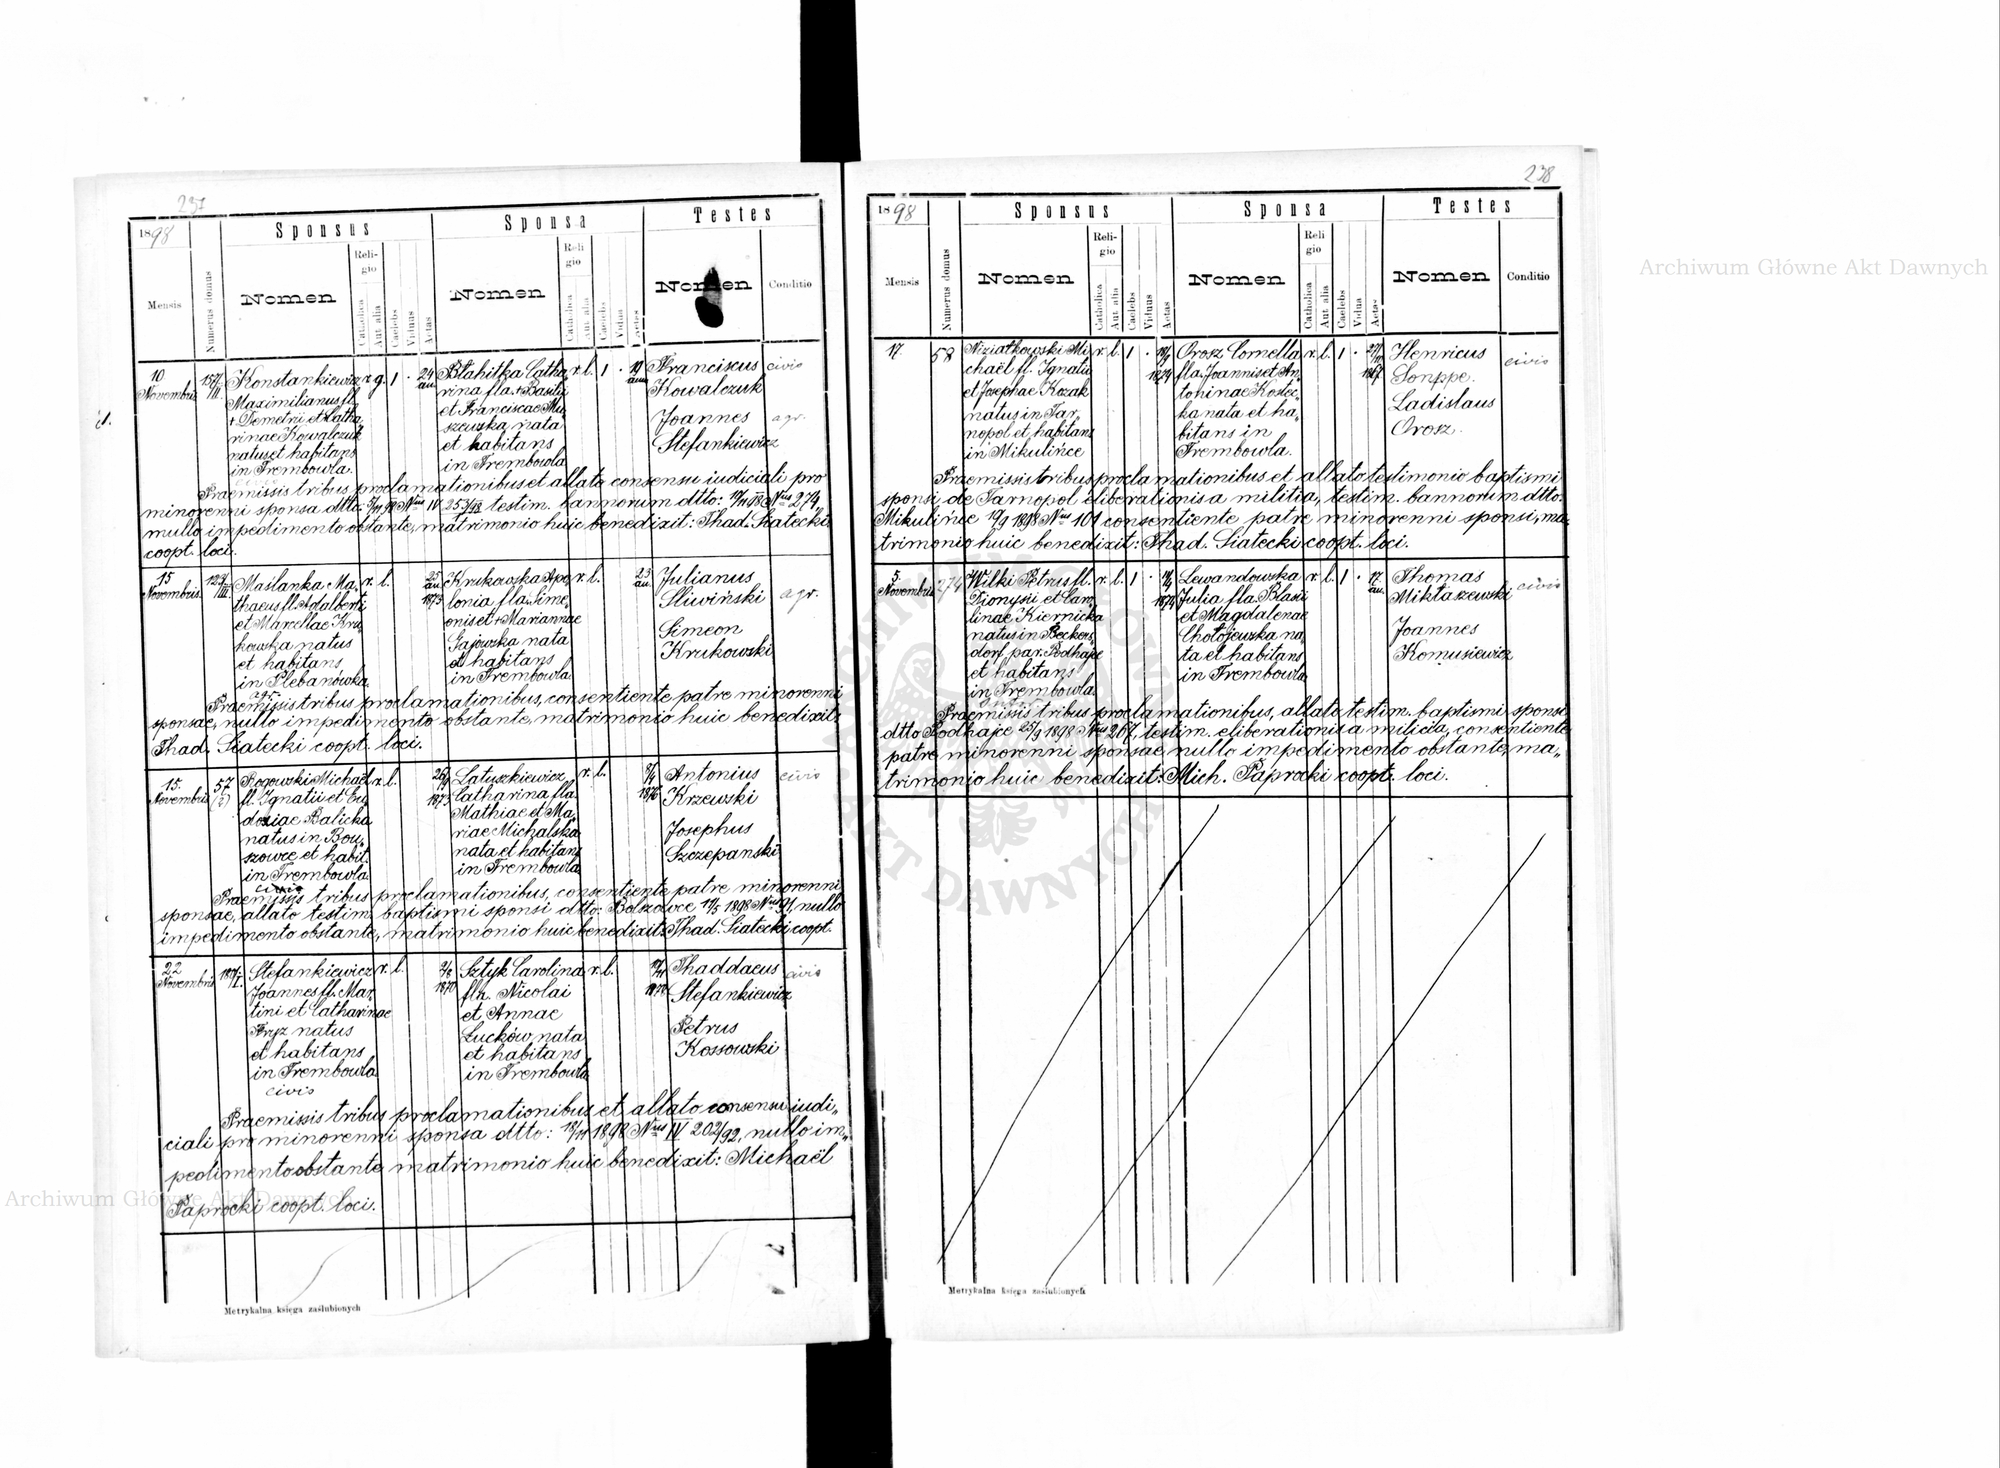 237
1898
Sponsus
Sponsa
Testes
Mensis
Numerus domus
Nomen
Religio
Catholica
Aut alia
Caelebs
Viduus
Aetas
Nomen
Religio
Catholica
Aut alia
Caelebs
Vidua
Aetas
Nomen
Conditio
10
Novembris
157/III.
Konstankiewicz
Maximilianus fl.
+ Demetri et Catha-
rinae Kowalczuk
natus et habitans
in Trembowla.
r. g. 1 .
24
an.
Błahitka Catha
rina fla. + Basilii
et Franciscae Mu-
szewska nata
et habitans
in Trembowla
r. l. 1 .
19
ann
Franciscus
Kowalczuk
Joannes
Stefankiewicz
civis
agr.
Praemissis tribus proclamationibus et allato consensu iudiciali pro
minorenni sponsa dtto: Nrus IV 253/98 testim. bannorum dtto: 98 Nrus 274,
nullo impedimento obstante, matrimonio huic benedixit: Thad. Siatecki
coopt. loci.
15
Novembris
129/III
Maslanka Ma-
thaeus fl. Adalberti
et Marcellae Kru-
kowska natus
et habitans
in Plebanówka
agr.
r. l.
25
an
1873
Krukowska Apo-
lonia fla. Sime-
onis et + Mariannae
Gajowska nata
et habitans
in Trembowla
r. l.
23
an.
Julianus
Śliwiński
Simeon
Krukowski
agr.
Praemissis tribus proclamationibus, consentiente patre minorenni
sponsae, nullo impedimento obstante, matrimonio huic benedixit:
Thad. Siatecki coopt. loci.
15.
Novembris
57
Rogowski Michael
fl. Ignatii et Eu-
doxiae Balicka
natus in Bou-
szowce et habit.
in Trembowla
civis
r. l.
26/9
1873
Latyszkiewicz
Catharina fla.
Mathiae et Ma-
riae Michalska
nata et habitans
in Trembowla
r. l.
1876
Antonius
Krzewski
Josephus
Szczepanski
civis
Praemissis tribus proclamationibus, consentiente patre minorenni
sponsae, allato testim. baptismi sponsi dtto: Bolszowce 17/5 1898 Nrus 91, nullo
impedimento obstante, matrimonio huic benedixit: Thad. Siatecki coopt.
22
Novembris
187/I.
Stefankiewicz
Joannes fl. Mar-
tini et Catharinae
Fryz natus
et habitans
in Trembowla
civis
r. l.
1870
Sztyk Carolina
fla. Nicolai
et Annae
Łucków nata
et habitans
in Trembowla
r. l.
1878
Thaddaeus
Stefankiewicz
Petrus
Kossowski
civis
Praemissis tribus proclamationibus et allato consensu iudi-
ciali pro minorenni sponsa dtto: 18/11 1898 Nrus IV 202/92, nullo im-
pedimento obstante matrimonio huic benedixit: Michaël
Paprocki coopt. loci.
Metrykalna księga zaślubionych
238
1898
Sponsus
Sponsa
Testes
Mensis
Numerus domus
Nomen
Religio
Catholica
Aut alia
Caelebs
Viduus
Aetas
Nomen
Religio
Catholica
Aut alia
Caelebs
Vidua
Aetas
Nomen
Conditio
17.
58
Niziałkowski Mi-
chaël fl. Ignatii
et Josephae Kozak
natus in Tar-
nopol et habitans
in Mikulińce
r. l. 1 .
1874
Orosz Cornelia
fla. Joannis et An-
toninae Kostec-
ka nata et ha-
bitans in
Trembowla.
r. l. 1 .
1867
Henricus
Sonppe.
Ladislaus
Orosz.
civis
Praemissis tribus proclamationibus et allato testimonio baptismi
sponsi de Tarnopol eliberationis a militia, testim. bannorum dtto.
Mikulińce 19/9 1898 Nrus 101 consentiente patre minorenni sponsi, ma-
trimonio huic benedixit: Thad. Siatecki coopt. loci.
5.
Novembris
274
Wilki Petrus fl.
Dionysii et Caro-
linae Kiernicka
natus in Beckers-
dorf par. Podhajce
et habitans
in Trembowla.
r. l. 1 .
1874
Lewandowska
Julia fla. Blasii
et Magdalenae
Chołojewska na-
ta et habitans
in Trembowla
r. l. 1 .
17.
an.
Thomas
Miktaszewski
Joannes
Komusiewicz
civis
Praemissis tribus proclamationibus, allato testim. baptismi sponsi
dtto Podhajce 25/9 1898 Nrus 267, testim. eliberationis a militia, consentiente
patre minorenni sponsae, nullo impedimento obstante, ma-
trimonio huic benedixit: Mich. Paprocki coopt. loci.
Metrykalna księga zaślubionych
Archiwum Główne Akt Dawnych
Archiwum Główne Akt Dawnych